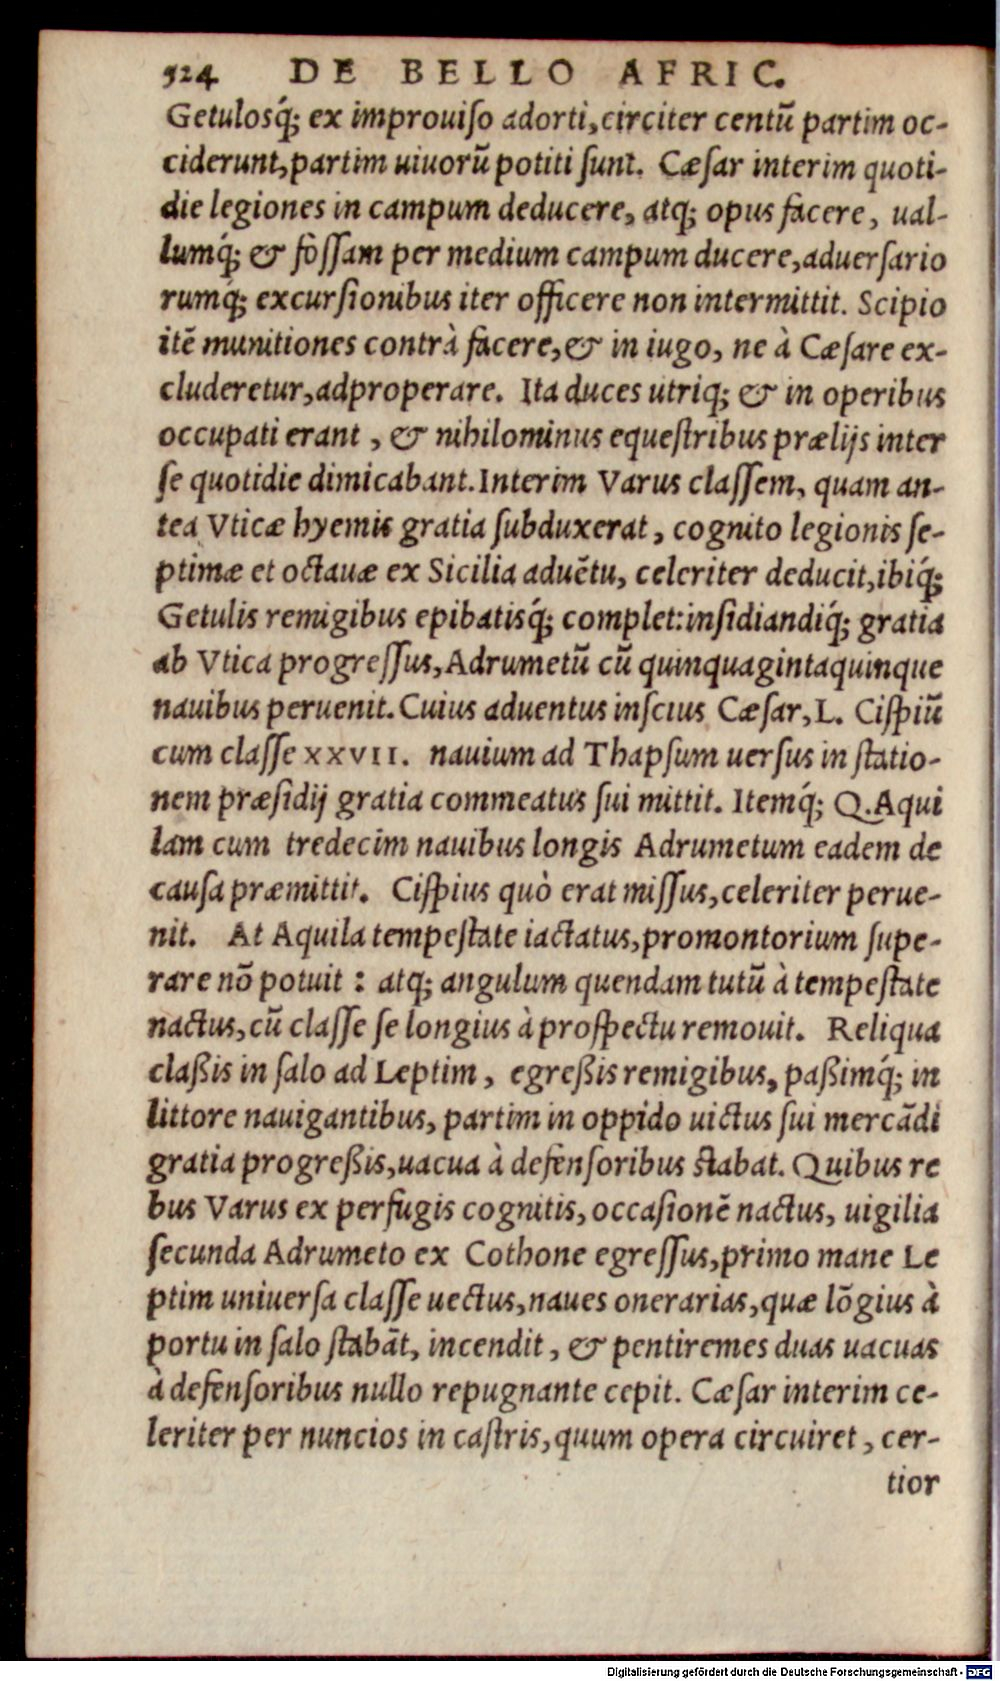 524 DE BELLO AFRIC.
Getulosq́; ex improuiſo adorti, circiter centũ partim oc-
ciderunt, partim uiuorũ potiti ſunt. Cæſar interim quoti-
die legiones in campum deducere, atq; opus facere, ual-
lumq́; & foſſam per medium campum ducere, aduerſario
rumq́; excurſionibus iter officere non intermittit. Scipio
itẽ munitiones contrà facere, & in iugo, ne à Cæſare ex-
cluderetur, adproperare. Ita duces utriq; & in operibus
occupati erant, & nihilominus equeſtribus prælijs inter
ſe quotidie dimicabant. Interim Varus claſſem, quam an-
tea Vticæ hyemis gratia ſubduxerat, cognito legionis ſe-
ptimæ et octauæ ex Sicilia aduẽtu, celeriter deducit, ibiq́;
Getulis remigibus epibatisq́; complet: inſidiandiq́; gratia
ab Vtica progreſſus, Adrumetũ cũ quinquagintaquinque
nauibus peruenit. Cuius aduentus inſcius Cæſar, L. Ciſpiũ
cum claſſe XXVII. nauium ad Thapſum uerſus in ſtatio-
nem præſidij gratia commeatus ſui mittit. Itemq́; Q. Aqui
lam cum tredecim nauibus longis Adrumetum eadem de
cauſa præmittit. Ciſpius quò erat miſſus, celeriter perue-
nit. At Aquila tempeſtate iactatus, promontorium ſupe-
rare nõ potuit: atq; angulum quendam tutũ à tempeſtate
nactus, cũ claſſe ſe longius à proſpectu remouit. Reliqua
claßis in ſalo ad Leptim, egreßis remigibus, paßimq́; in
littore nauigantibus, partim in oppido uictus ſui mercãdi
gratia progreßis, uacua à defenſoribus ſtabat. Quibus re
bus Varus ex perfugis cognitis, occaſionẽ nactus, uigilia
ſecunda Adrumeto ex Cothone egreſſus, primo mane Le
ptim uniuerſa claſſe uectus, naues onerarias, quæ lõgius à
portu in ſalo ſtabãt, incendit, & pentiremes duas uacuas
à defenſoribus nullo repugnante cepit. Cæſar interim ce-
leriter per nuncios in caſtris, quum opera circuiret, cer-
tior
Digitalisierung gefördert durch die Deutsche Forschungsgemeinschaft - DFG